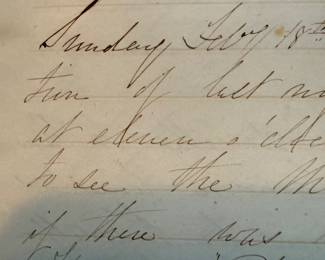 Sunday Feby 18th
tion of last
at eleven o'clo
to see the M
if there was